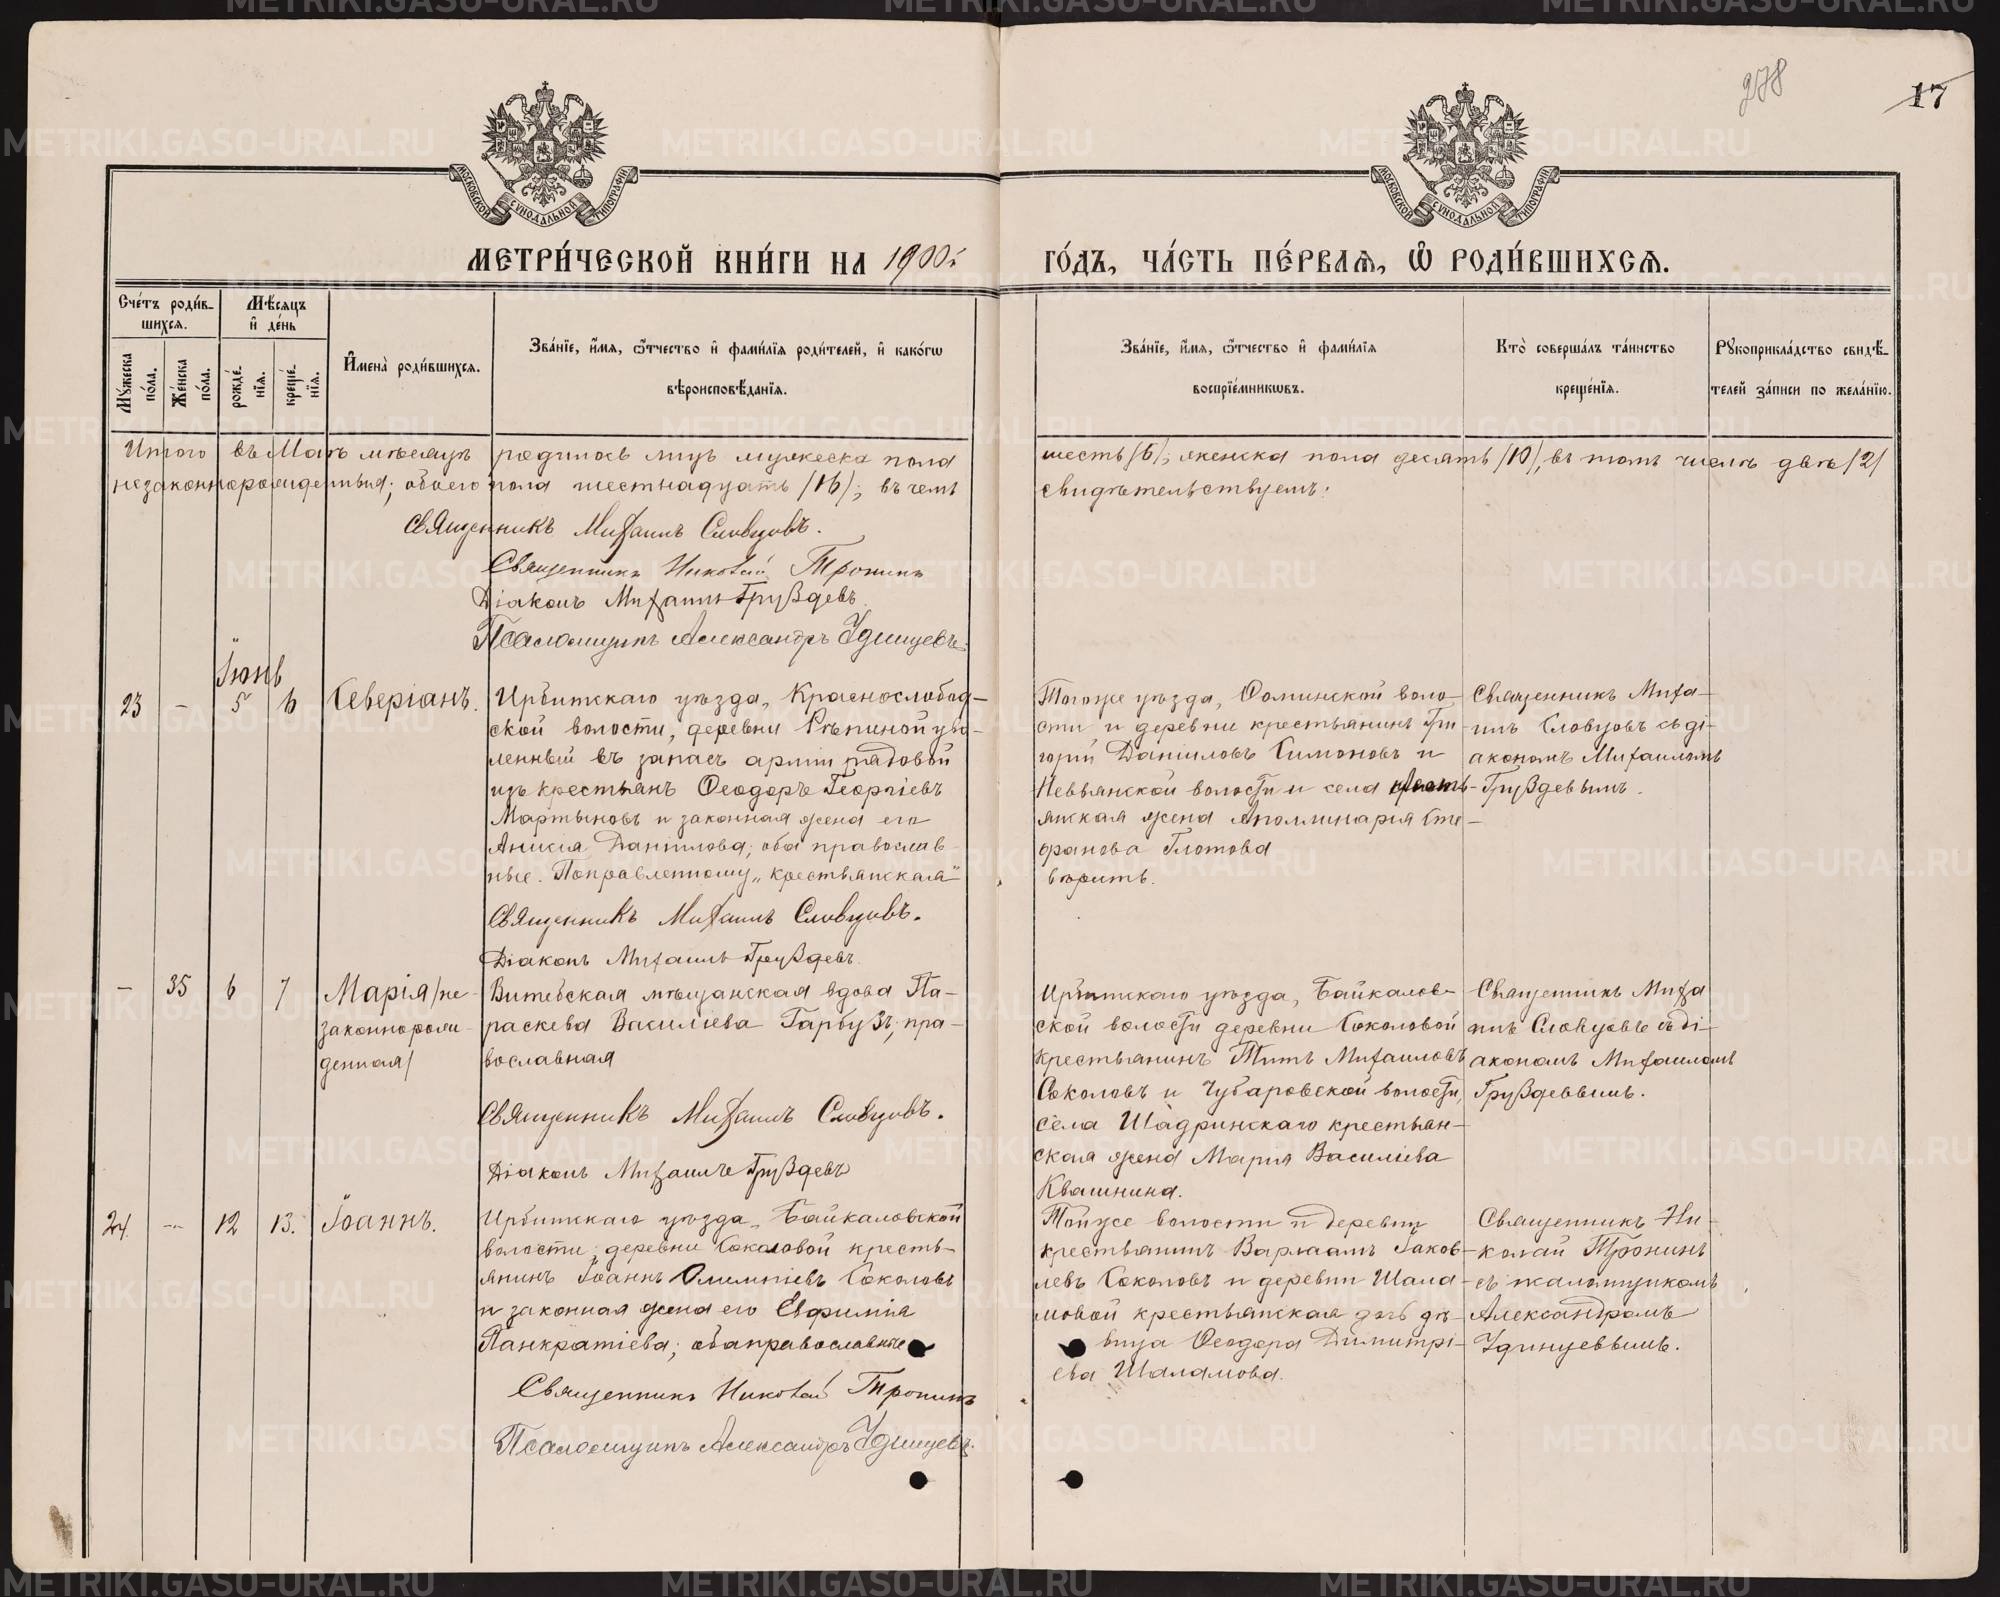 278
17
МОСКОВСКОЙ СѴНОДАЛЬНОЙ ТИПОГРАФІИ
МОСКОВСКОЙ СѴНОДАЛЬНОЙ ТИПОГРАФІИ
МЕТРИ́ЧЕСКОЙ КНИ́ГИ НА 1900й ГО́ДЪ, ЧА́СТЬ ПЕ́РВАЯ, Ѡ҆ РОДИ́ВШИХСЯ.
Сче́тъ роди́в-
шихся.
Мѣ́сяцъ
и҆ де́нь
Мꙋ́жеска по́ла.
Же́нска по́ла.
рожде́нїя.
креще́нїя.
И҆мена̀ роди́вшихся.
Зва́нїе, и҆́мя, ѻ҆́тчество и҆ фами́лїя роди́телей, и҆ како́гѡ
вѣроисповѣ́данїя.
Зва́нїе, и҆́мя, ѻ҆́тчество и҆ фами́лїя
воспрїе́мникѡвъ.
Кто̀ соверша́лъ та́инство
креще́нїя.
Рꙋкоприкла́дство свидѣ́-
телей за́писи по жела́нїю.
Итого въ Маѣ мѣсяцѣ родилось лицъ мужеска пола шесть /6/, женска пола десять /10/, въ томъ числѣ двѣ /2/
незаконнорожденныя; обоего пола шестнадцать /16/; въ чемъ свидѣтельствуемъ:
Священникъ Михаилъ Словцовъ.
Священникъ Николай Тронинъ
Діаконъ Михаилъ Груздевъ.
Псаломщикъ Александръ Удинцевъ.
Іюнь
23 – 5 6 Северіанъ.
Ирбитскаго уѣзда, Краснослобод-
ской волости, деревни Рѣпиной уво-
ленный въ запасъ арміи рядовой
изъ крестьянъ Ѳеодоръ Георгіевъ
Мартыновъ и законная жена его
Анисія Даніилова; оба православ-
ные. Поправленному „крестьянская“
Священникъ Михаилъ Словцовъ.
Діаконъ Михаилъ Груздевъ.
Тогоже уѣзда, Ѳоминской воло-
сти и деревни крестьянинъ Гри-
горій Даніиловъ Симоновъ и
Невьянской волости и села кресть-
янская жена Аполлинарія Сте-
фанова Глотова
вѣрить.
Священникъ Миха-
илъ Словцовъ съ ді-
акономъ Михаиломъ
Груздевымъ.
– 35 6 7 Марія /не-
законнорож-
денная/
Витебская мѣщанская вдова Па-
раскева Василіева Гарбузъ, пра-
вославная
Священникъ Михаилъ Словцовъ.
Діаконъ Михаилъ Груздевъ
Ирбитскаго уѣзда, Байкалов-
ской волости деревни Соколовой
крестьянинъ Титъ Михаиловъ
Соколовъ и Чубаровской волости,
села Шадринскаго крестьян-
ская жена Марія Василіева
Квашнина.
Священникъ Миха
илъ Словцовъ съ ді-
акономъ Михаиломъ
Груздевымъ.
24. – 12 13. Іоаннъ.
Ирбитскаго уѣзда, Байкаловской
волости, деревни Соколовой кресть-
янинъ Іоаннъ Олимпіевъ Соколовъ
и законная жена его Евфимія
Панкратіева; оба православные
Священникъ Николай Тронинъ
Псаломщикъ Александръ Удинцевъ.
Тойже волости и деревни
крестьянинъ Варлаамъ Іаков-
левъ Соколовъ и деревни Шала-
мовой крестьянская дѣ-
вица Ѳеодора Димитрі-
ева Шаламова.
Священникъ Ни-
колай Тронинъ
съ псаломщикомъ
Александромъ
Удинцевымъ.